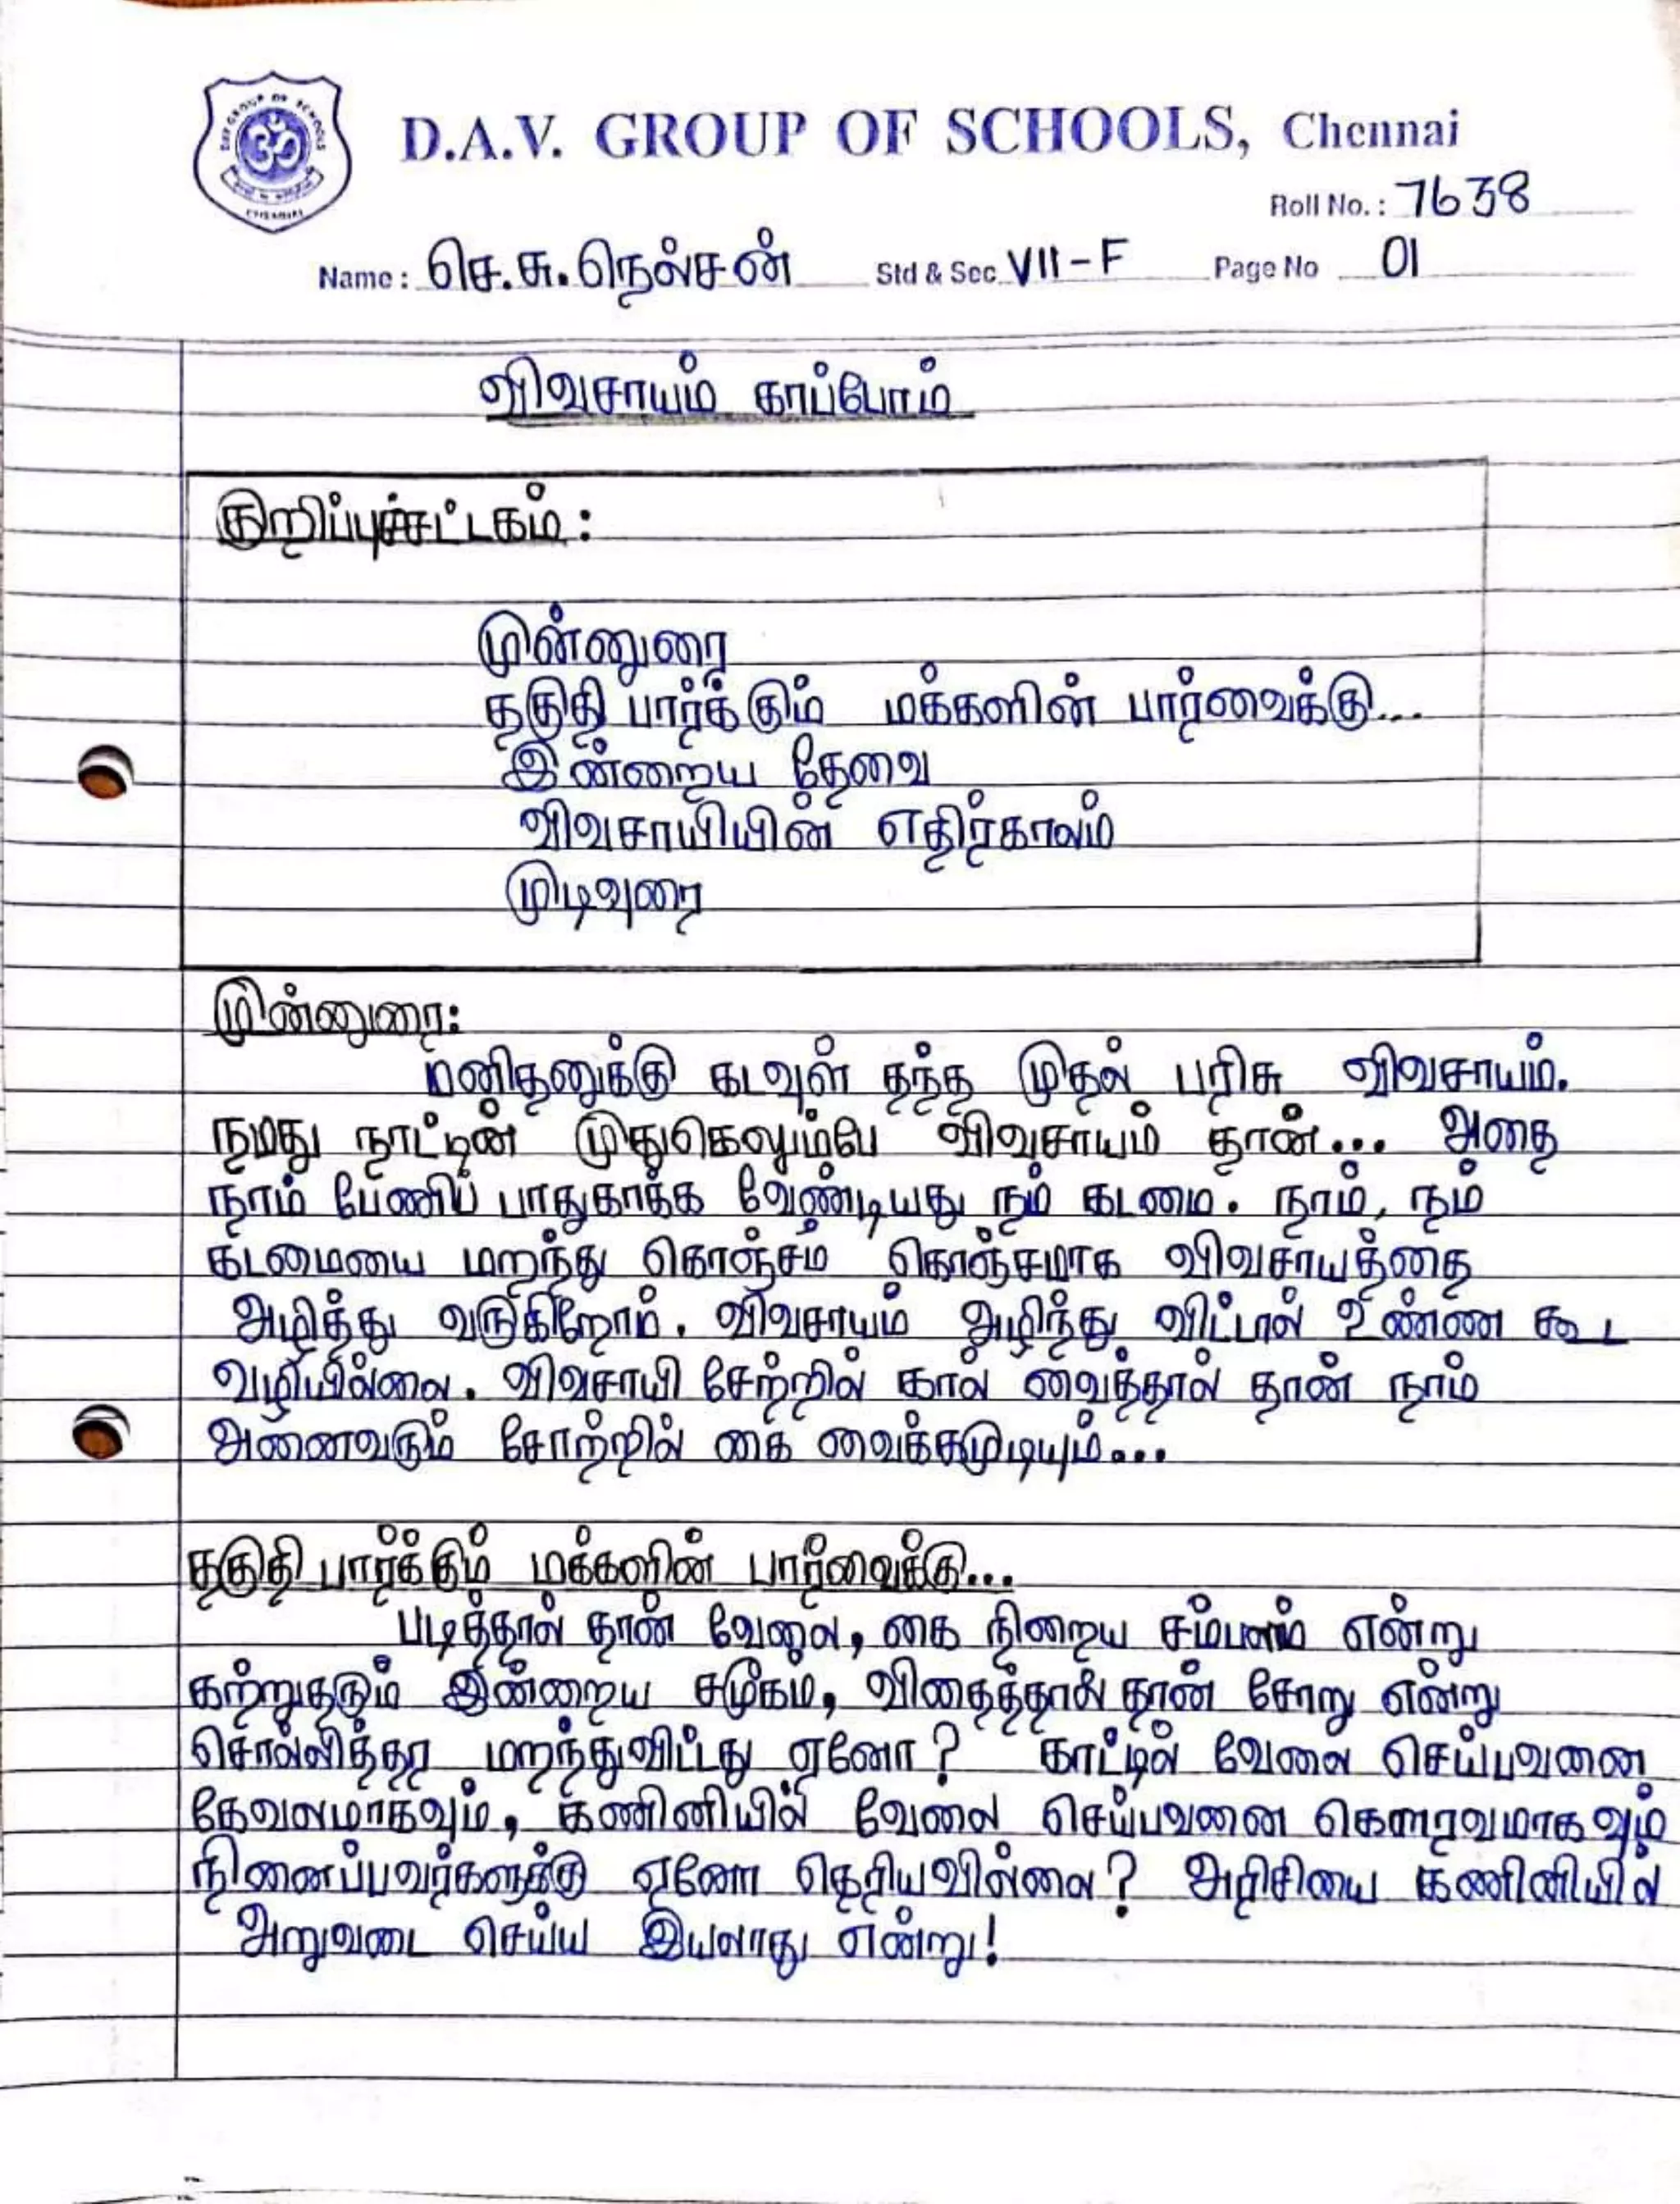 D.A.V. GROUP OF SCHOOLS, Chennai
Roll No. : 7638
Name : செ.சு.நெல்சன் Std & Sec VII-F Page No 01
விவசாயம் காப்போம்
குறிப்புச்சட்டகம் :
முன்னுரை
தகுதி பார்க்கும் மக்களின் பார்வைக்கு...
இன்றைய தேவை
விவசாயியின் எதிர்காலம்
முடிவுரை
முன்னுரை:
மனிதனுக்கு கடவுள் தந்த முதல் பரிசு விவசாயம்.
நமது நாட்டின் முதுகெலும்பே விவசாயம் தான்... அதை
நாம் பேணிப் பாதுகாக்க வேண்டியது நம் கடமை. நாம், நம்
கடமையை மறந்து கொஞ்சம் கொஞ்சமாக விவசாயத்தை
அழித்து வருகிறோம். விவசாயம் அழிந்து விட்டால் உண்ண கூட
வழியில்லை. விவசாயி சேற்றில் கால் வைத்தால் தான் நாம்
அனைவரும் சோற்றில் கை வைக்கமுடியும்...
தகுதி பார்க்கும் மக்களின் பார்வைக்கு...
படித்தால் தான் வேலை, கை நிறைய சம்பளம் என்று
கற்றுதரும் இன்றைய சமூகம், விதைத்தால் தான் சோறு என்று
சொல்லித்தர மறந்துவிட்டது ஏனோ? காட்டில் வேலை செய்பவனை
கேவலமாகவும், கணினியில் வேலை செய்பவனை கௌரவமாகவும்
நினைப்பவர்களுக்கு ஏனோ தெரியவில்லை? அரிசியை கணினியில்
அறுவடை செய்ய இயலாது என்று!